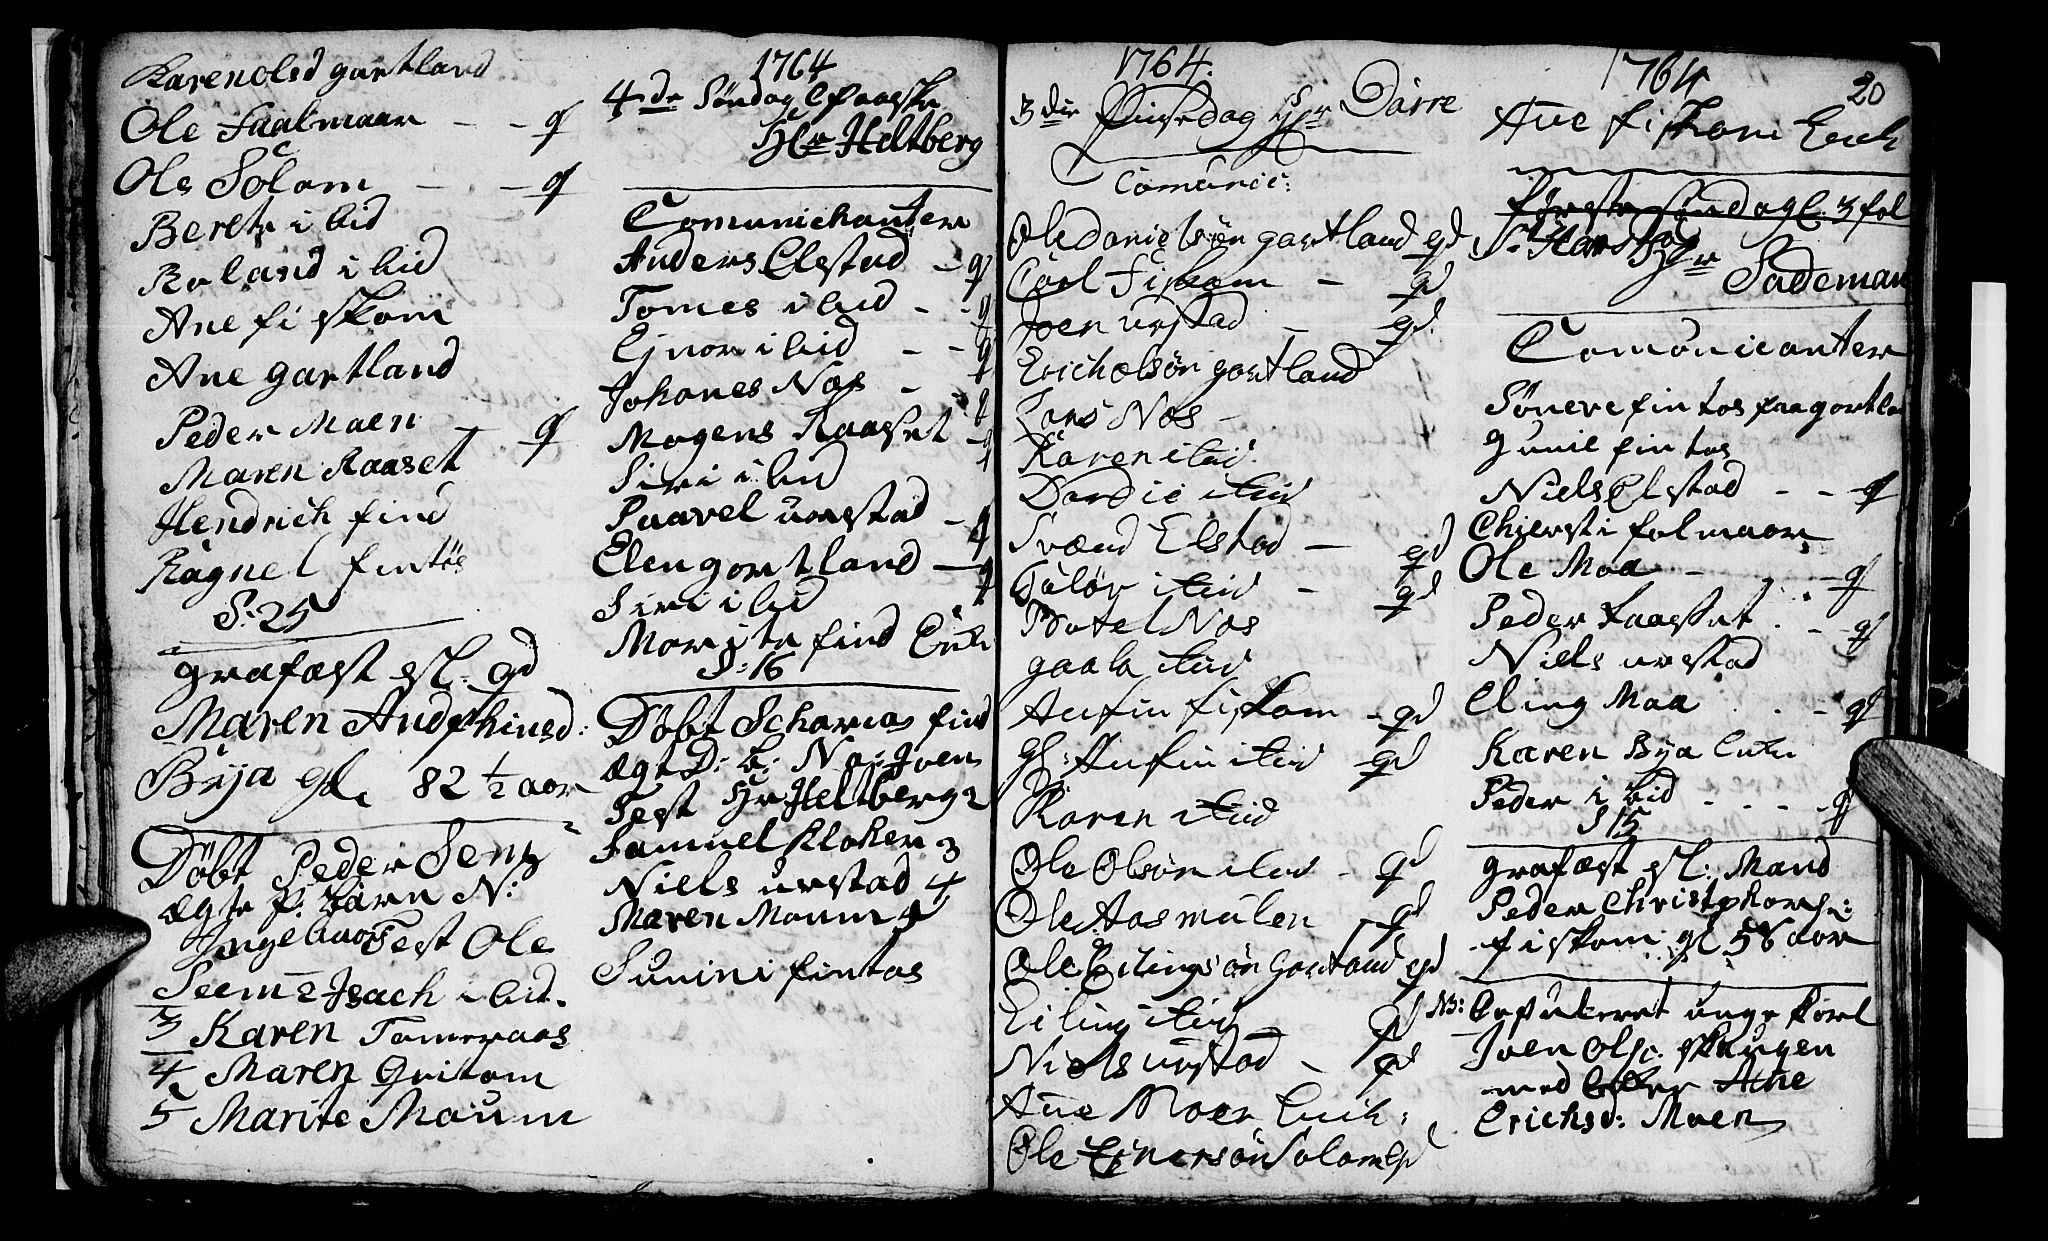 Karen olsd gartland
Ole Faalmaar - - q
Ole Solom - - q
Beret i bid
Roland i bid
Ane fiskom
Ane gartland
Peder Moen - q
Maren Raaset
Hendrich find
Ragnel fintøs
S: 25
grafæst sl: qd
Maren Andfhinsd:
Bÿa gl. 82 1/2 aar
Døbt Peder Jens
ægte p. barn N:
Ingebaar Test Ole
Seem 2 Isach i bid.
3 Karen Tømeraas
4 Maren Gritom
5 Marite Moüm
1764
4de Søndag E Paaske
Hr Heltberg
Comunichanter
Anders Elstad - q
Tomes i bid - - q
Ejnor i bid - - q
Johanes Nos - q
Mogens Raaset - q
Siri i bid
Paavel urstad - q
Elen gortland - q
Siri i bid
Morite find Enke
S: 16
Døbt Scharias find
ægt D: b: No: Iven
Test Hr Heltberg 2
Samuel Kloken 3
Niels urstad 4
Maren Moum 5
Sunini fintos
1764.
3die Pinsedag Hr Därre
Comunic:
Ole Danielsøn gartland qd
Carl Fiskom - qd
Joen urstad - qd
Erich olsøn gortland
Lars Nos -
Karen itid
Dordi itid
Svænd Elstad - qd
Guløv itid - qd
Botel Nos
gaala itid
Anfin fiskom - qd
gl: Anfin itid qd
Karen itid
Ole Olsøn itid - qd
Ole Aasmulen - qd
Ole Erlingsøn Gartland qd
Erling itid - qd
Niels urstad - qd
Ane Moen Enck:
Ole Ejnersøn Solom qd
1764 20
Ane fiskom Enck
første Søndag E. 3 fol
St Hans Hr
Sademan
Comonicanter
Sønere fintos paa gortla
gunil fintos
Niels Elstad - - q
Chiersti folmaar
Ole Moa - - q
Peder Raaset . - q
Niels urstad
Eling Moa . - q
Karen Bÿa Enke
Peder i bid - - - q
S 15
grafæst sl: Mand
Peder Christophersn:
fiskom gl 58 aar
N: Copuleret unge karl
Iven Olss. skaugen
med Ane
Erichsd: Moen